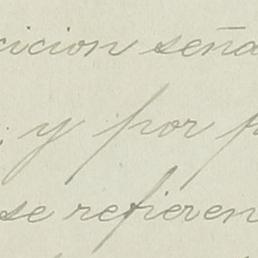 cicion seña
; y por p
se refieren